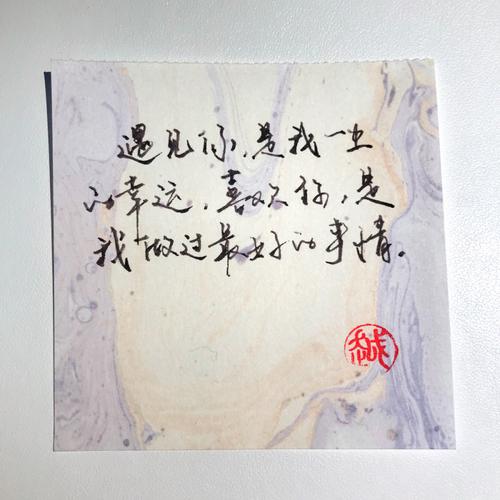 遇见你,是我一生
的幸运,喜欢你,是
我做过最好的事情。